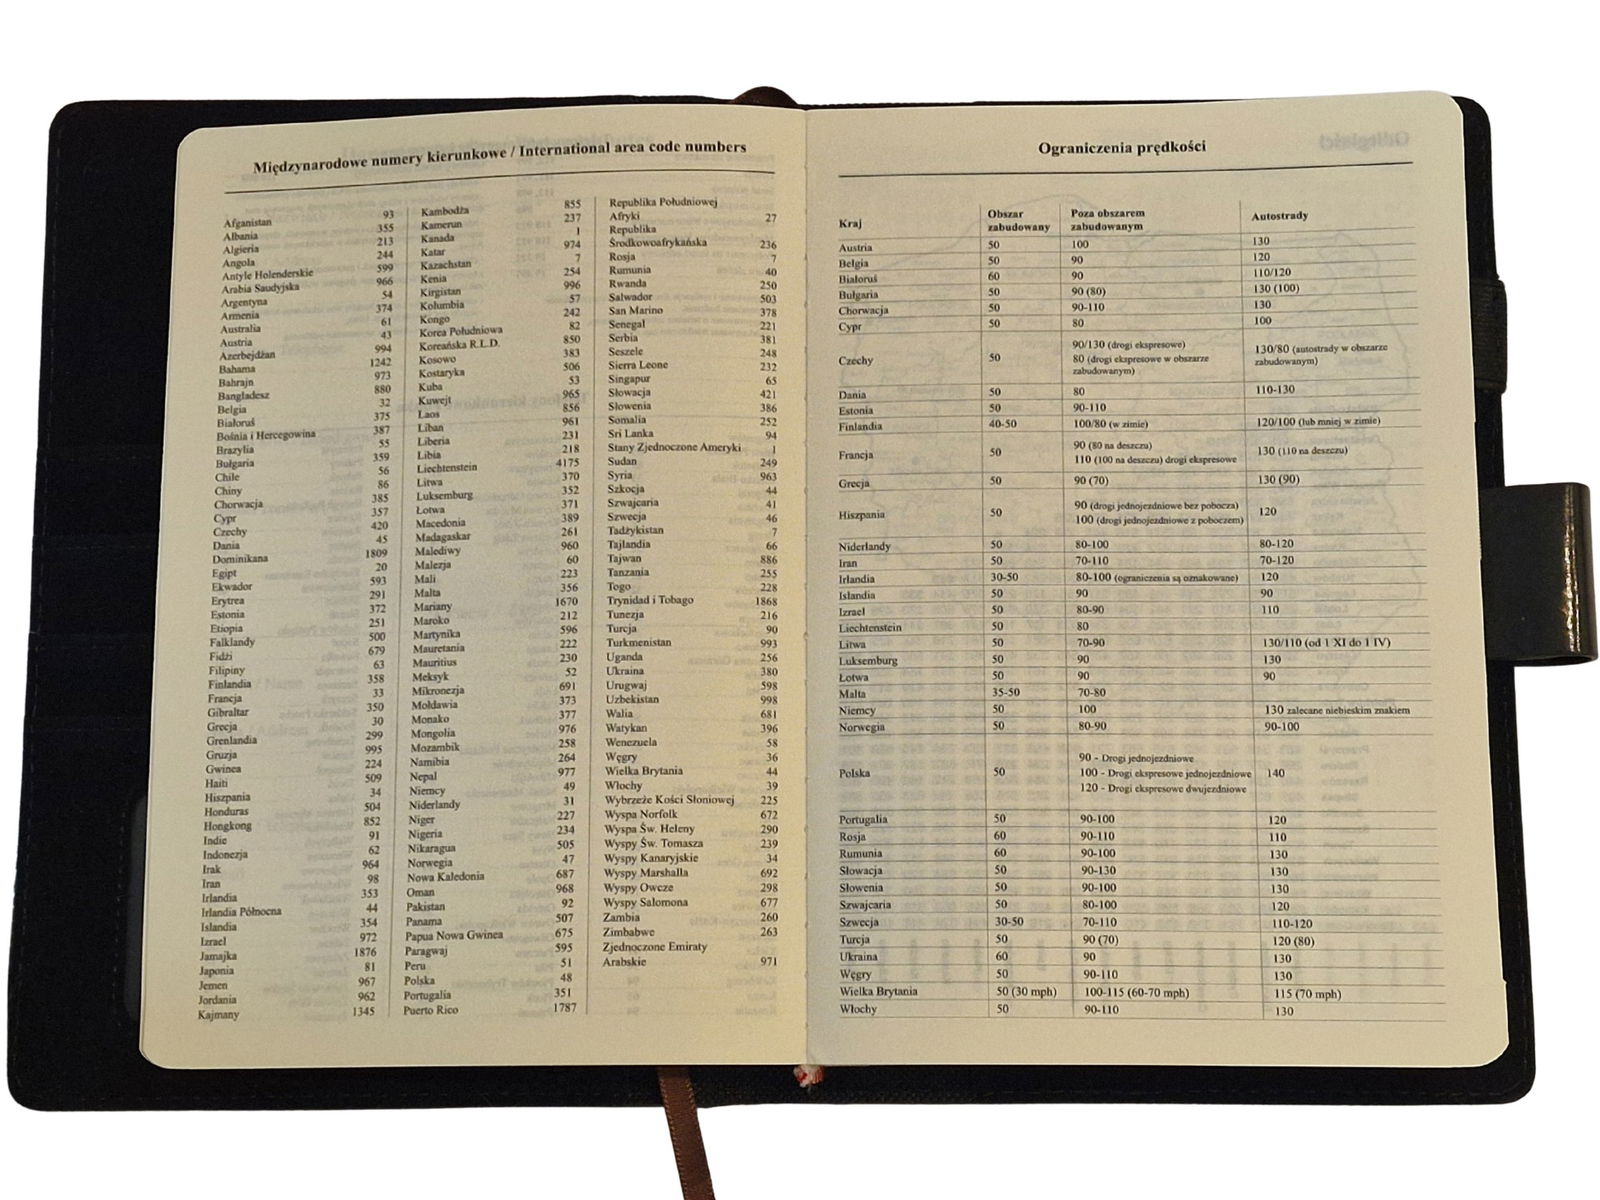 Międzynarodowe numery kierunkowe / International area code numbers
Afganistan 93
Albania 355
Algieria 213
Angola 244
Antyle Holenderskie 599
Arabia Saudyjska 966
Argentyna 54
Armenia 374
Australia 61
Austria 43
Azerbejdżan 994
Bahama 1242
Bahrajn 973
Bangladesz 880
Belgia 32
Białoruś 375
Bośnia i Hercegowina 387
Brazylia 55
Bułgaria 359
Chile 56
Chiny 86
Chorwacja 385
Cypr 357
Czechy 420
Dania 45
Dominikana 1809
Egipt 20
Ekwador 593
Erytrea 291
Estonia 372
Etiopia 251
Falklandy 500
Fidżi 679
Filipiny 63
Finlandia 358
Francja 33
Gibraltar 350
Grecja 30
Grenlandia 299
Gruzja 995
Gwinea 224
Haiti 509
Hiszpania 34
Honduras 504
Hongkong 852
Indie 91
Indonezja 62
Irak 964
Iran 98
Irlandia 353
Irlandia Północna 44
Islandia 354
Izrael 972
Jamajka 1876
Japonia 81
Jemen 967
Jordania 962
Kajmany 1345
Kambodża 855
Kamerun 237
Kanada 1
Katar 974
Kazachstan 7
Kenia 254
Kirgistan 996
Kolumbia 57
Kongo 242
Korea Południowa 82
Koreańska R.L.D. 850
Kosowo 383
Kostaryka 506
Kuba 53
Kuwejt 965
Laos 856
Liban 961
Liberia 231
Libia 218
Liechtenstein 4175
Litwa 370
Luksemburg 352
Łotwa 371
Macedonia 389
Madagaskar 261
Malediwy 960
Malezja 60
Mali 223
Malta 356
Mariany 1670
Maroko 212
Martynika 596
Mauretania 222
Mauritius 230
Meksyk 52
Mikronezja 691
Mołdawia 373
Monako 377
Mongolia 976
Mozambik 258
Namibia 264
Nepal 977
Niemcy 49
Niderlandy 31
Niger 227
Nigeria 234
Nikaragua 505
Norwegia 47
Nowa Kaledonia 687
Oman 968
Pakistan 92
Panama 507
Papua Nowa Gwinea 675
Paragwaj 595
Peru 51
Polska 48
Portugalia 351
Puerto Rico 1787
Republika Południowej
Afryki 27
Republika
Środkowoafrykańska 236
Rosja 7
Rumunia 40
Rwanda 250
Salwador 503
San Marino 378
Senegal 221
Serbia 381
Seszele 248
Sierra Leone 232
Singapur 65
Słowacja 421
Słowenia 386
Somalia 252
Sri Lanka 94
Stany Zjednoczone Ameryki 1
Sudan 249
Syria 963
Szkocja 44
Szwajcaria 41
Szwecja 46
Tadżykistan 7
Tajlandia 66
Tajwan 886
Tanzania 255
Togo 228
Trynidad i Tobago 1868
Tunezja 216
Turcja 90
Turkmenistan 993
Uganda 256
Ukraina 380
Urugwaj 598
Uzbekistan 998
Walia 681
Watykan 396
Wenezuela 58
Węgry 36
Wielka Brytania 44
Włochy 39
Wybrzeże Kości Słoniowej 225
Wyspa Norfolk 672
Wyspa Św. Heleny 290
Wyspy Św. Tomasza 239
Wyspy Kanaryjskie 34
Wyspy Marshalla 692
Wyspy Owcze 298
Wyspy Salomona 677
Zambia 260
Zimbabwe 263
Zjednoczone Emiraty
Arabskie 971
Ograniczenia prędkości
Kraj Obszar zabudowany Poza obszarem zabudowanym Autostrady
Austria 50 100 130
Belgia 50 90 120
Białoruś 60 90 110/120
Bułgaria 50 90 (80) 130 (100)
Chorwacja 50 90-110 130
Cypr 50 80 100
Czechy 50 90/130 (drogi ekspresowe)
80 (drogi ekspresowe w obszarze
zabudowanym) 130/80 (autostrady w obszarze
zabudowanym)
Dania 50 80 110-130
Estonia 50 90-110
Finlandia 40-50 100/80 (w zimie) 120/100 (lub mniej w zimie)
Francja 50 90 (80 na deszczu)
110 (100 na deszczu) drogi ekspresowe 130 (110 na deszczu)
Grecja 50 90 (70) 130 (90)
Hiszpania 50 90 (drogi jednojezdniowe bez pobocza)
100 (drogi jednojezdniowe z poboczem) 120
Niderlandy 50 80-100 80-120
Iran 50 70-110 70-120
Irlandia 30-50 80-100 (ograniczenia są oznakowane) 120
Islandia 50 90 90
Izrael 50 80-90 110
Liechtenstein 50 80
Litwa 50 70-90 130/110 (od 1 XI do 1 IV)
Luksemburg 50 90 130
Łotwa 50 90 90
Malta 35-50 70-80
Niemcy 50 100 130 zalecane niebieskim znakiem
Norwegia 50 80-90 90-100
Polska 50 90 - Drogi jednojezdniowe
100 - Drogi ekspresowe jednojezdniowe
120 - Drogi ekspresowe dwujezdniowe 140
Portugalia 50 90-100 120
Rosja 60 90-110 110
Rumunia 60 90-100 130
Słowacja 50 90-130 130
Słowenia 50 90-100 130
Szwajcaria 50 80-100 120
Szwecja 30-50 70-110 110-120
Turcja 50 90 (70) 120 (80)
Ukraina 60 90 130
Węgry 50 90-110 130
Wielka Brytania 50 (30 mph) 100-115 (60-70 mph) 115 (70 mph)
Włochy 50 90-110 130